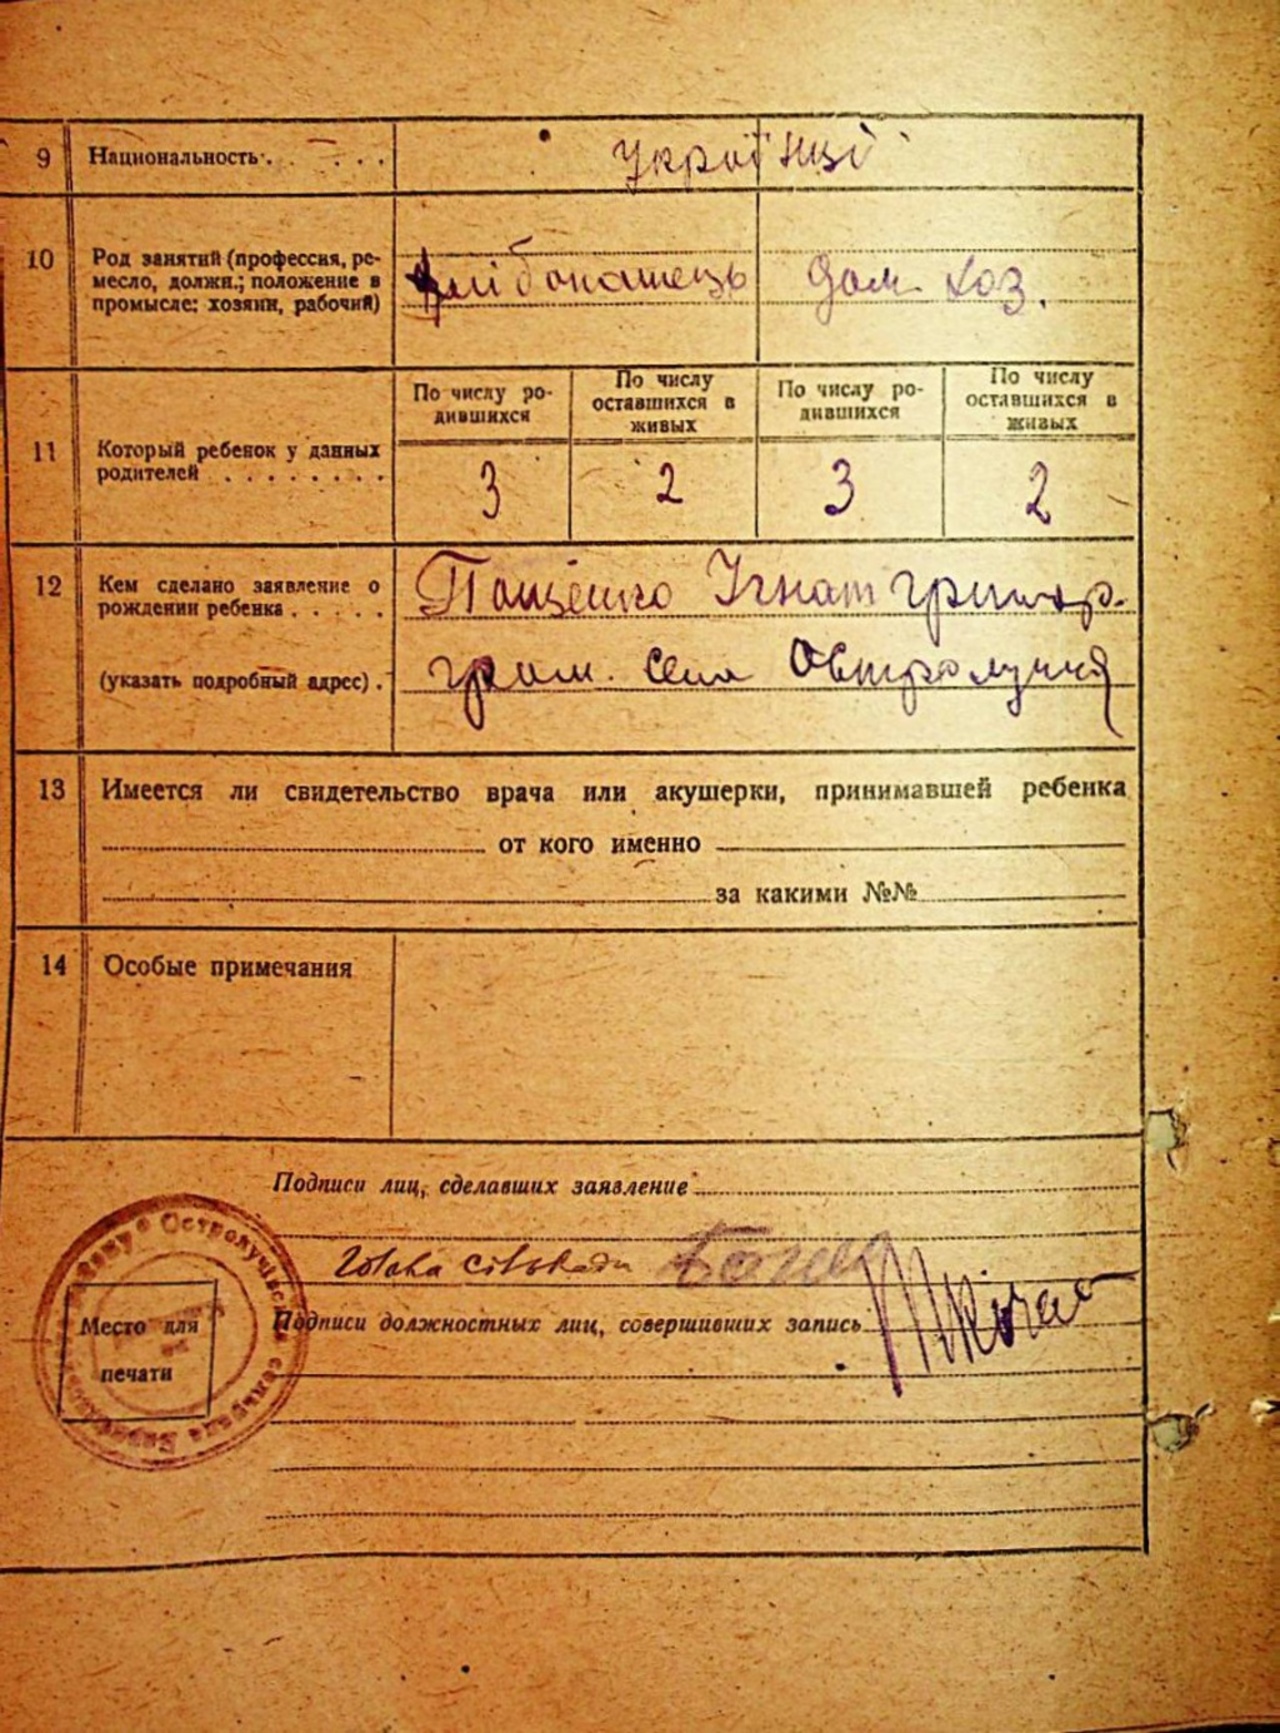 9 Национальность . . . . . . українці
10 Род занятий (профессия, ре-
месло, должн.; положение в
промысле: хозяин, рабочий)
хлібопашець дом. хоз.
По числу ро-
дившихся
По числу
оставшихся в
живых
По числу ро-
дившихся
По числу
оставшихся в
живых
11 Который ребенок у данных
родителей . . . . . . . .
3 2 3 2
12 Кем сделано заявление о
рождении ребенка . . . . .
Пащенко Ігнат Григор.
(указать подробный адрес) .
гром. села
13 Имеется ли свидетельство врача или акушерки, принимавшей ребенка
от кого именно
за какими №№
14 Особые примечания
Подписи лиц, сделавших заявление
Голова сільради
Подписи должностных лиц, совершивших запись
Место для
печати